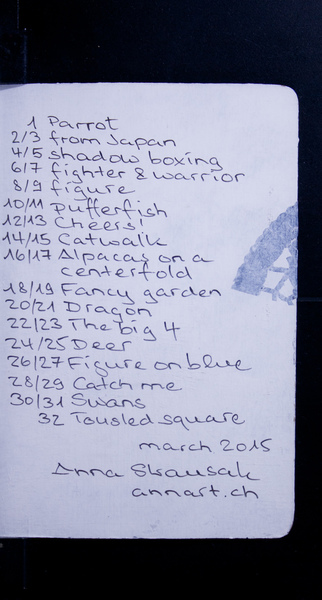 1 Parrot
2/3 from Japan
4/5 shadow boxing
6/7 fighter & warrior
8/9 figure
10/11 Pufferfish
12/13 Cheers!
14/15 Catwalk
16/17 Alpacas on a
centerfold
18/19 Fancy garden
20/21 Dragon
22/23 The big 4
24/25 Deer
26/27 Figure on blue
28/29 Catch me
30/31 Swans
32 Tousled square
march 2015
Anna Strausak
annart.ch